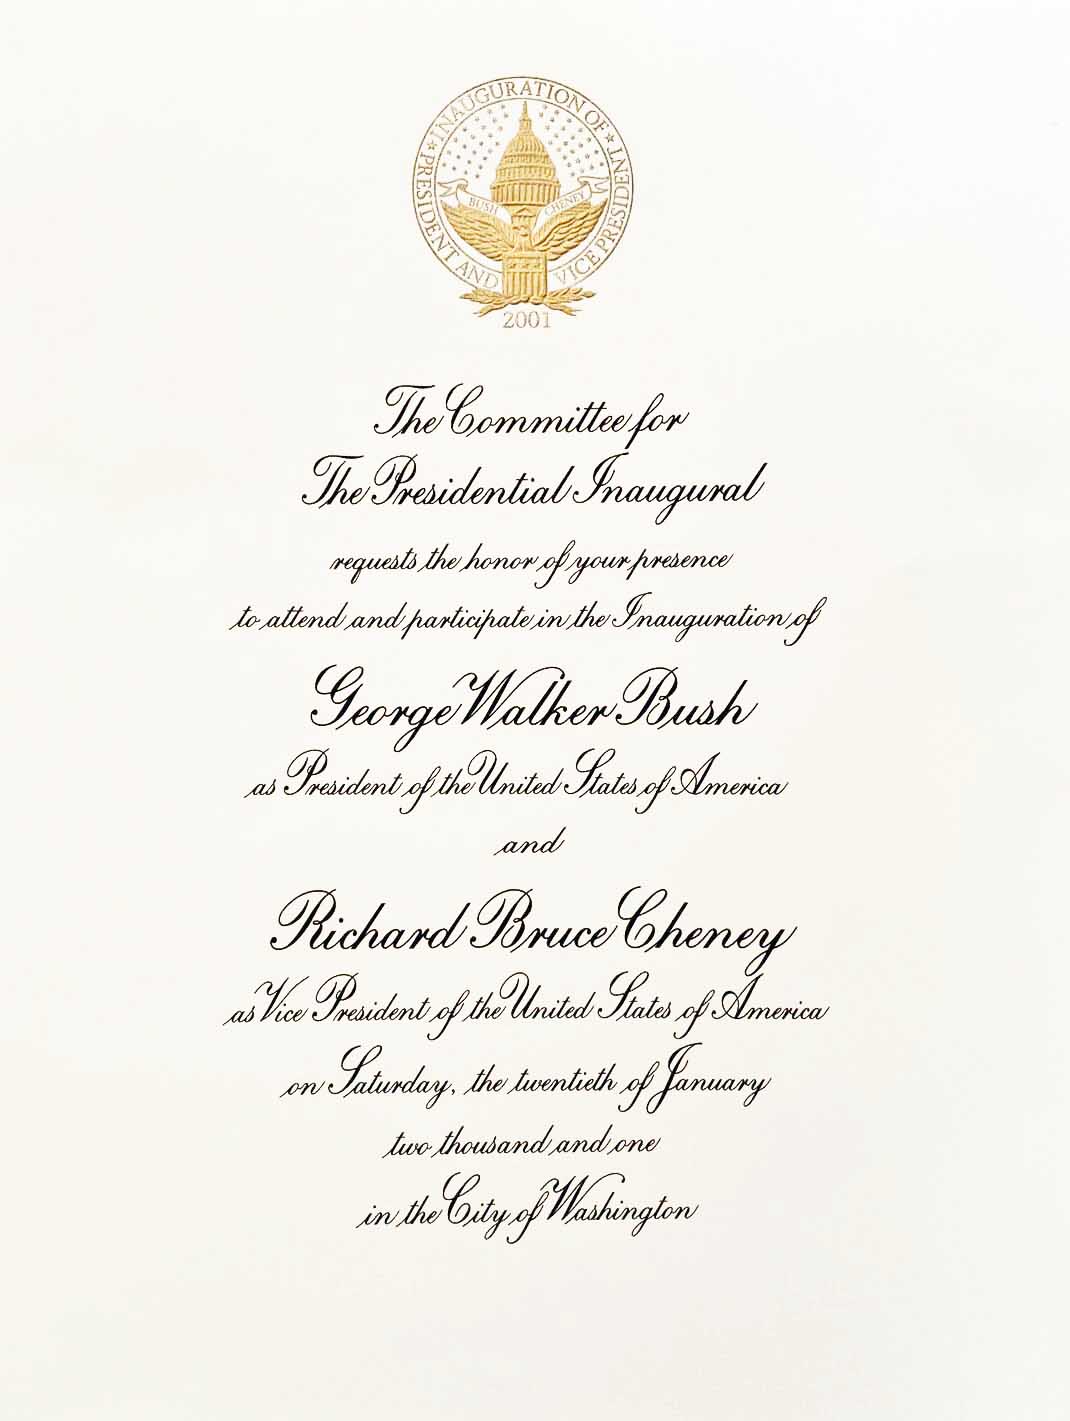 ★ INAUGURATION OF ★
PRESIDENT AND VICE PRESIDENT
BUSH CHENEY
2001
The Committee for
The Presidential Inaugural
requests the honor of your presence
to attend and participate in the Inauguration of
George Walker Bush
as President of the United States of America
and
Richard Bruce Cheney
as Vice President of the United States of America
on Saturday, the twentieth of January
two thousand and one
in the City of Washington